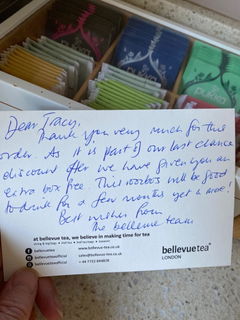 pukka
Dear Tracy,
Thank you very much for this
order. As it is part of our last chance
discount offer we have given you an
extra box free. This rooibos will be good
to drink for a few months yet &
Best wishes from
The bellevue team
at bellevue tea, we believe in making time for tea
bellevuetea
www.bellevuetea.co.uk
bellevueteaofficial
sales@bellevue-tea.co.uk
bellevueteaofficial
bellevuetea
LONDON